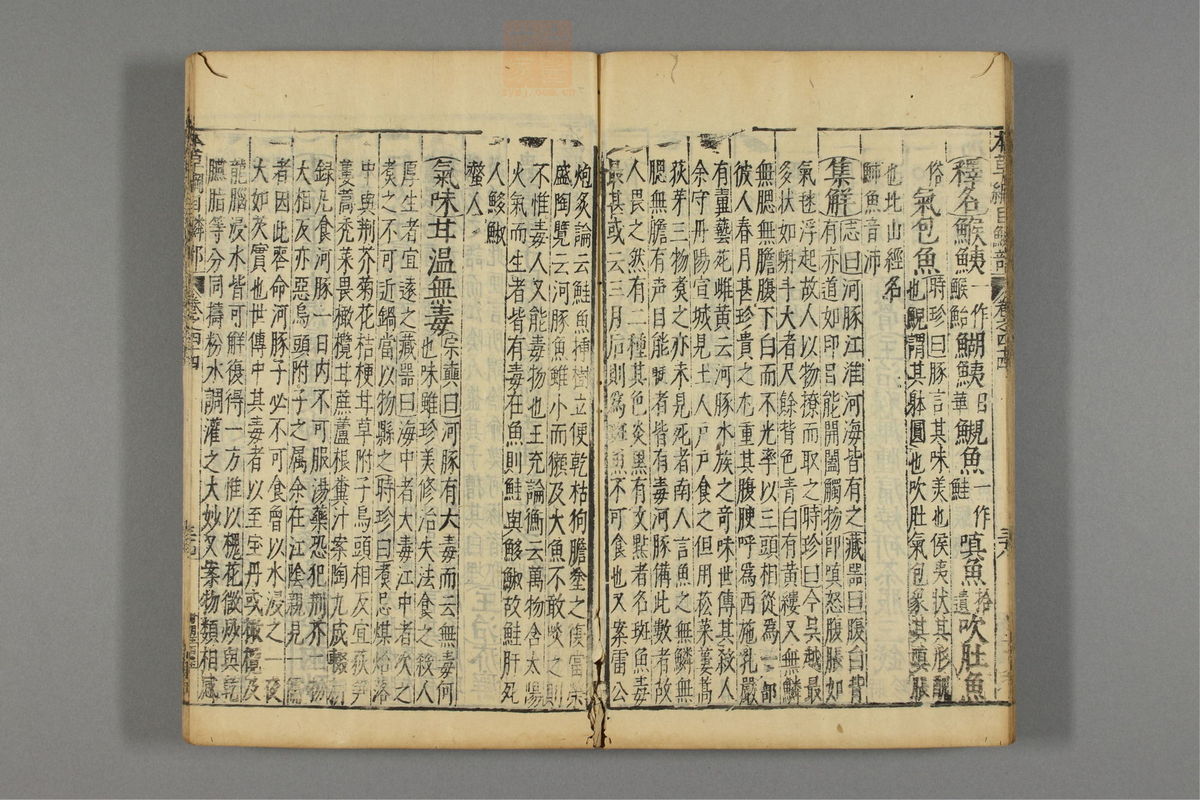 本草綱目鱗部 卷之四十四 三十六
釋名鯸鮧一作鯸鮐鰗鮧日華鯢魚一作鮭嗔魚拾遺吹肚魚
俗氣包魚時珍曰豚言其味美也侯夷狀其形醜
也鯢謂其躰圓也吹肚氣包象其嗔脹
也北山經名
䰽魚音沛
集解志曰河豚江淮河海皆有之藏器曰腹白背
有赤道如印目能開闔觸物即嗔怒腹脹如
氣毬浮起故人以物撩而取之時珍曰今吳越最
多狀如蝌斗大者尺餘背色青白有黃縷又無鱗
無腮無膽腹下白而不光率以三頭相從為一部
彼人春月甚珍貴之尤重其腹腴呼為西施乳嚴
有翼藝苑雌黃云河豚水族之奇味世傳其殺人
余守丹陽宣城見土人戶戶食之但用菘菜蔞蒿
荻芽三物煑之亦未見死者南人言魚之無鱗無
腮無膽有声目能眨者皆有毒河豚備此數者故
人畏之然有二種其色淡黑有文點者名斑魚毒
最甚或云三月后則為斑魚不可食也又案雷公
炮炙論云鮭魚插樹立便乾枯狗膽塗之復當榮
盛陶覽云河豚魚雖小而獺及大魚不敢啖之則
不惟毒人又能毒物也王充論衡云萬物含太陽
火氣而生者皆有毒在魚則鮭與鮗鮴故鮭肝死
人鮗鮴
螫人
氣味甘溫無毒宗奭曰河豚有大毒而云無毒何
也味雖珍美修治失法食之殺人
厚生者宜遠之藏器曰海中者大毒江中者次之
煮之不可近鍋當以物懸之時珍曰煮忌煤炲落
中與荆芥菊花桔梗甘草附子烏頭相反宜荻笋
蔞蒿禿菜畏橄欖甘蔗蘆根糞汁案陶九成輟耕
録凡食河豚一日內不可服湯藥恐犯荆芥二物
大相反亦惡烏頭附子之属余在江陰親見一儒
者因此喪命河豚子必不可食曾以水浸之一夜
大如芡實也世傳中其毒者以至宝丹或橄欖及
龍腦浸水皆可解復得一方惟以槐花微炒與乾
臙脂等分同擣粉水調灌之大妙又案物類相感
本草綱目鱗部 卷之四十四